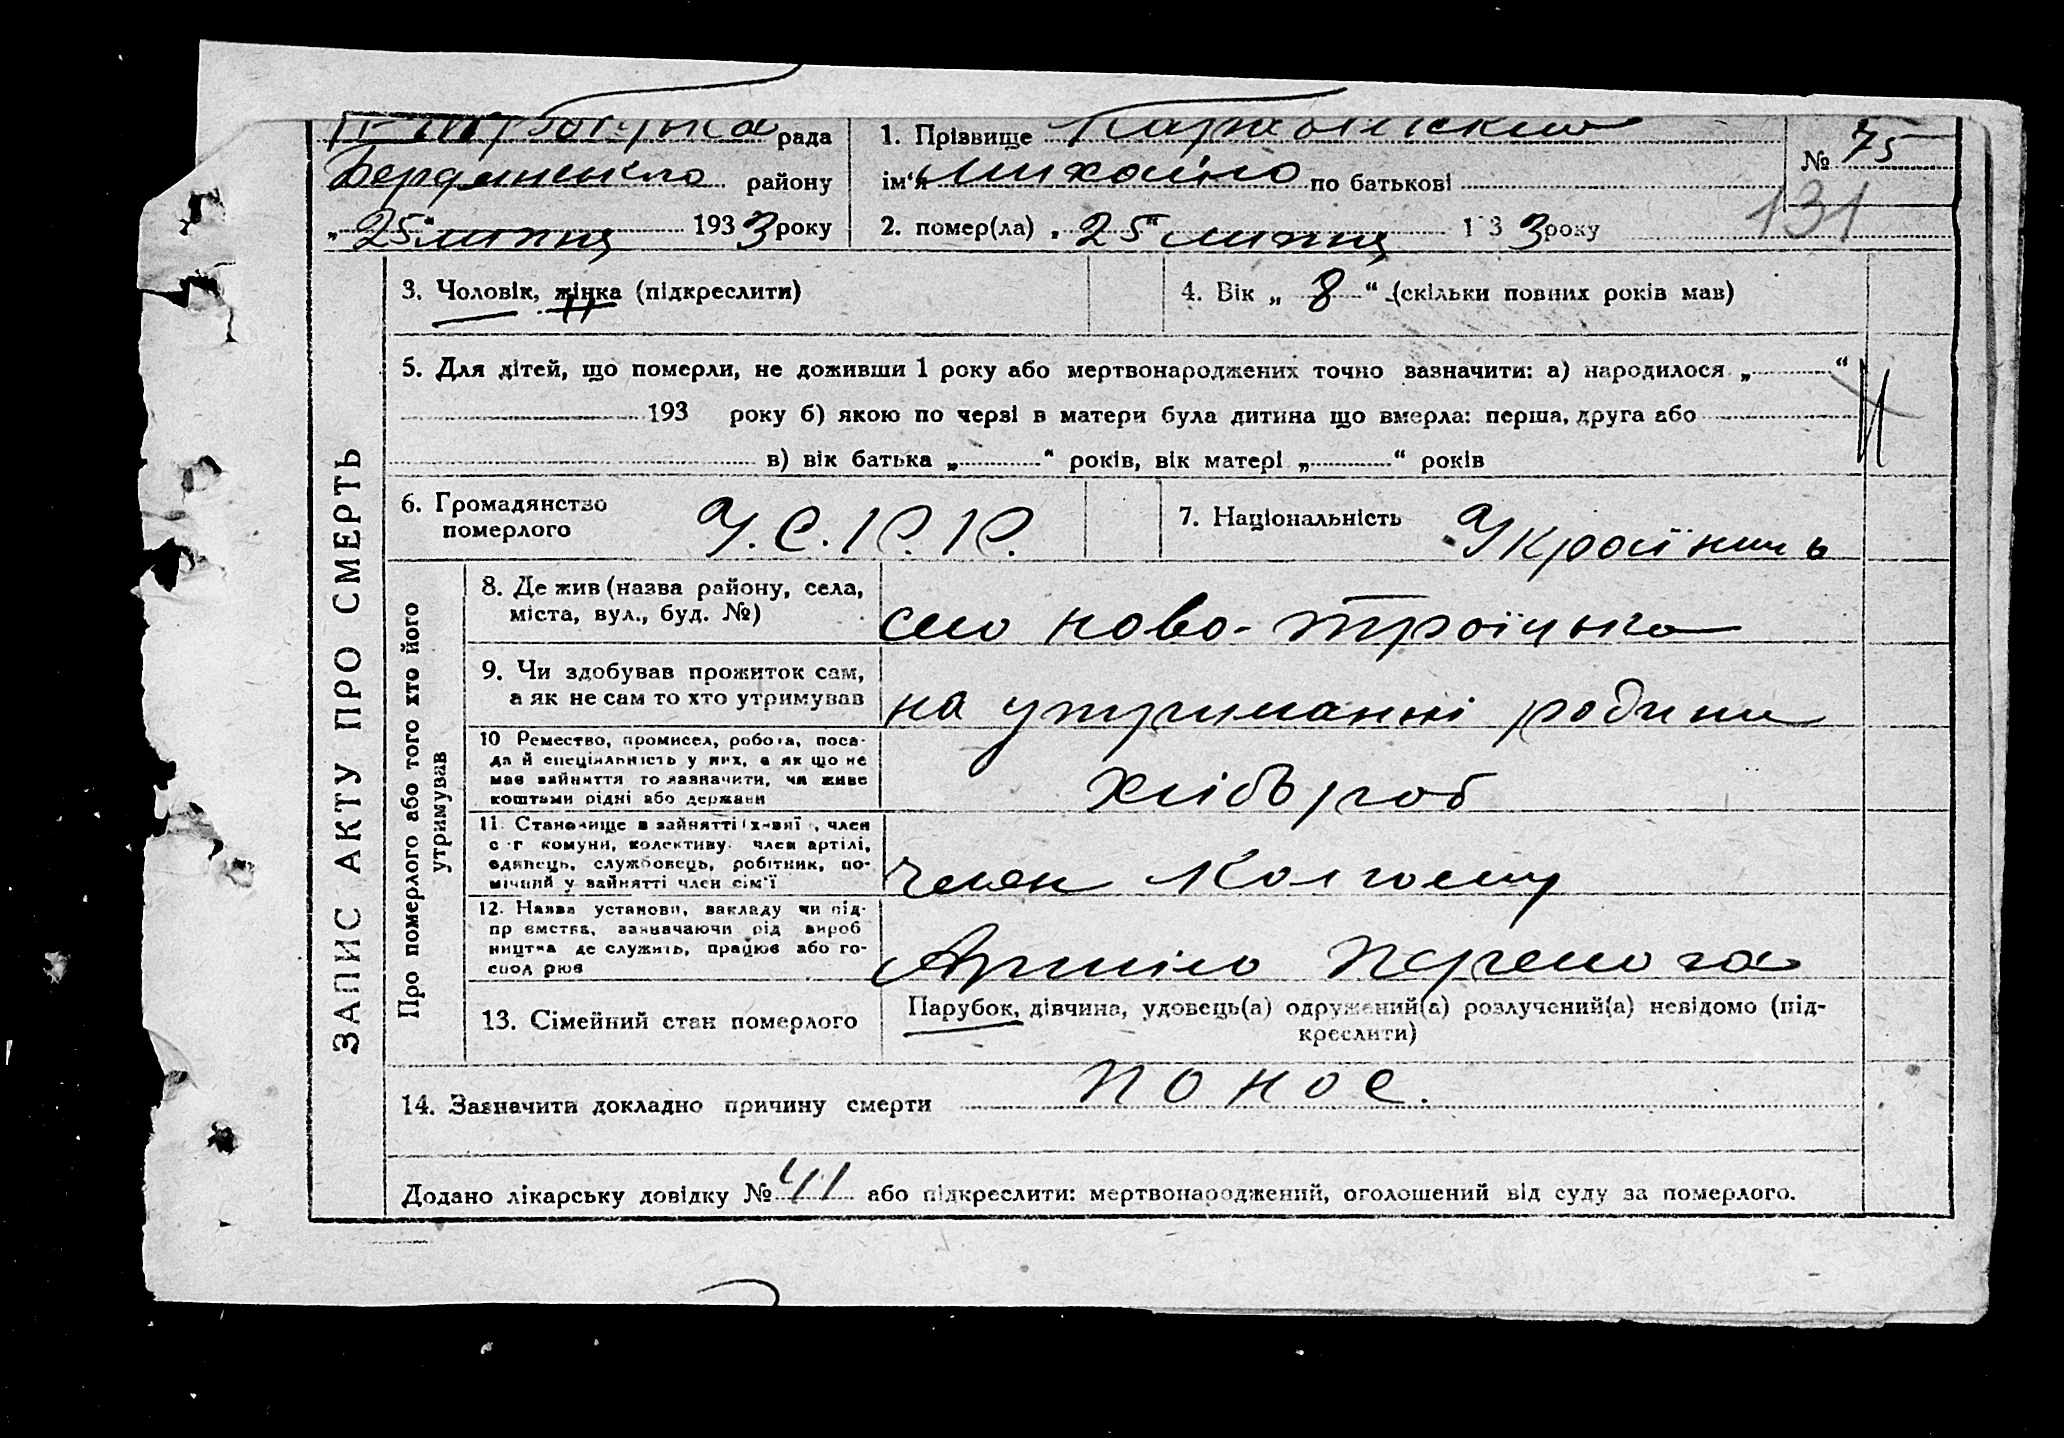 рада
Бердянського району
„25“ липня 1933 року
1. Прізвище
ім'я Михайло по батькові
2. помер(ла) „25“ липня 1 3 3 року
№ 75
131
ЗАПИС АКТУ ПРО СМЕРТЬ
3. Чоловік, жінка (підкреслити)
4. Вік „ 8 “ (скільки повних років мав)
5. Для дітей, що померли, не доживши 1 року або мертвонароджених точно зазначити: а) народилося „ “
193 року б) якою по черзі в матери була дитина що вмерла: перша, друга або
в) вік батька „ “ років, вік матері „ “ років
6. Громадянство
померлого
У.С.Р.Р.
7. Національність Українець
Про померлого або того хто його
утримував
8. Де жив (назва району, села,
міста, вул., буд. №)
село ново-троїцька
9. Чи здобував прожиток сам,
а як не сам то хто утримував
на утриманні родини
10 Ремество, промисел, робота, поса-
да й спеціяльність у них, а як що не
має зайняття то зазначити, чи живе
коштами рідні або держави
хлібороб
11. Становище в зайнятті , член
с-г комуни, колективу. член артілі,
одинець, службовець, робітник, по-
мічний у зайнятті член сім'ї
член Колгоспу
12. Назва установи, закладу чи під-
пр ємства, зазначаючи рід вироб
ництва де служить, працює або го-
спод рює
Перемога
13. Сімейний стан померлого
Парубок, дівчина, удовець(а) одружений(а) розлучений(а) невідомо (під-
креслити)
14. Зазначити докладно причину смерти понос.
Додано лікарську довідку № 41 або підкреслити: мертвонароджений, оголошений від суду за померлого.